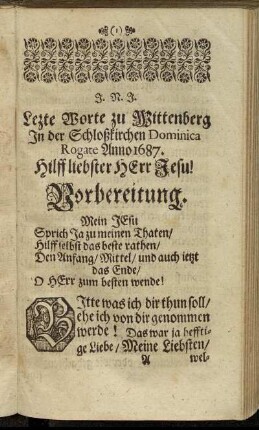 (1)
J. N. J.
Lezte Worte zu Wittenberg
Jn der Schloßkirchen Dominica
Rogate Anno 1687.
Hilff liebster HErr Jesu!
Vorbereitung.
Mein JEsu
Sprich Ja zu meinen Thaten/
Hilff selbst das beste rathen/
Den Anfang/ Mittel/ und auch ietzt
das Ende/
O HErr zum besten wende!
BItte was ich dir thun soll/
ehe ich von dir genommen
werde! Das war ja heffti-
ge Liebe/ Meine Liebsten/
A wel-